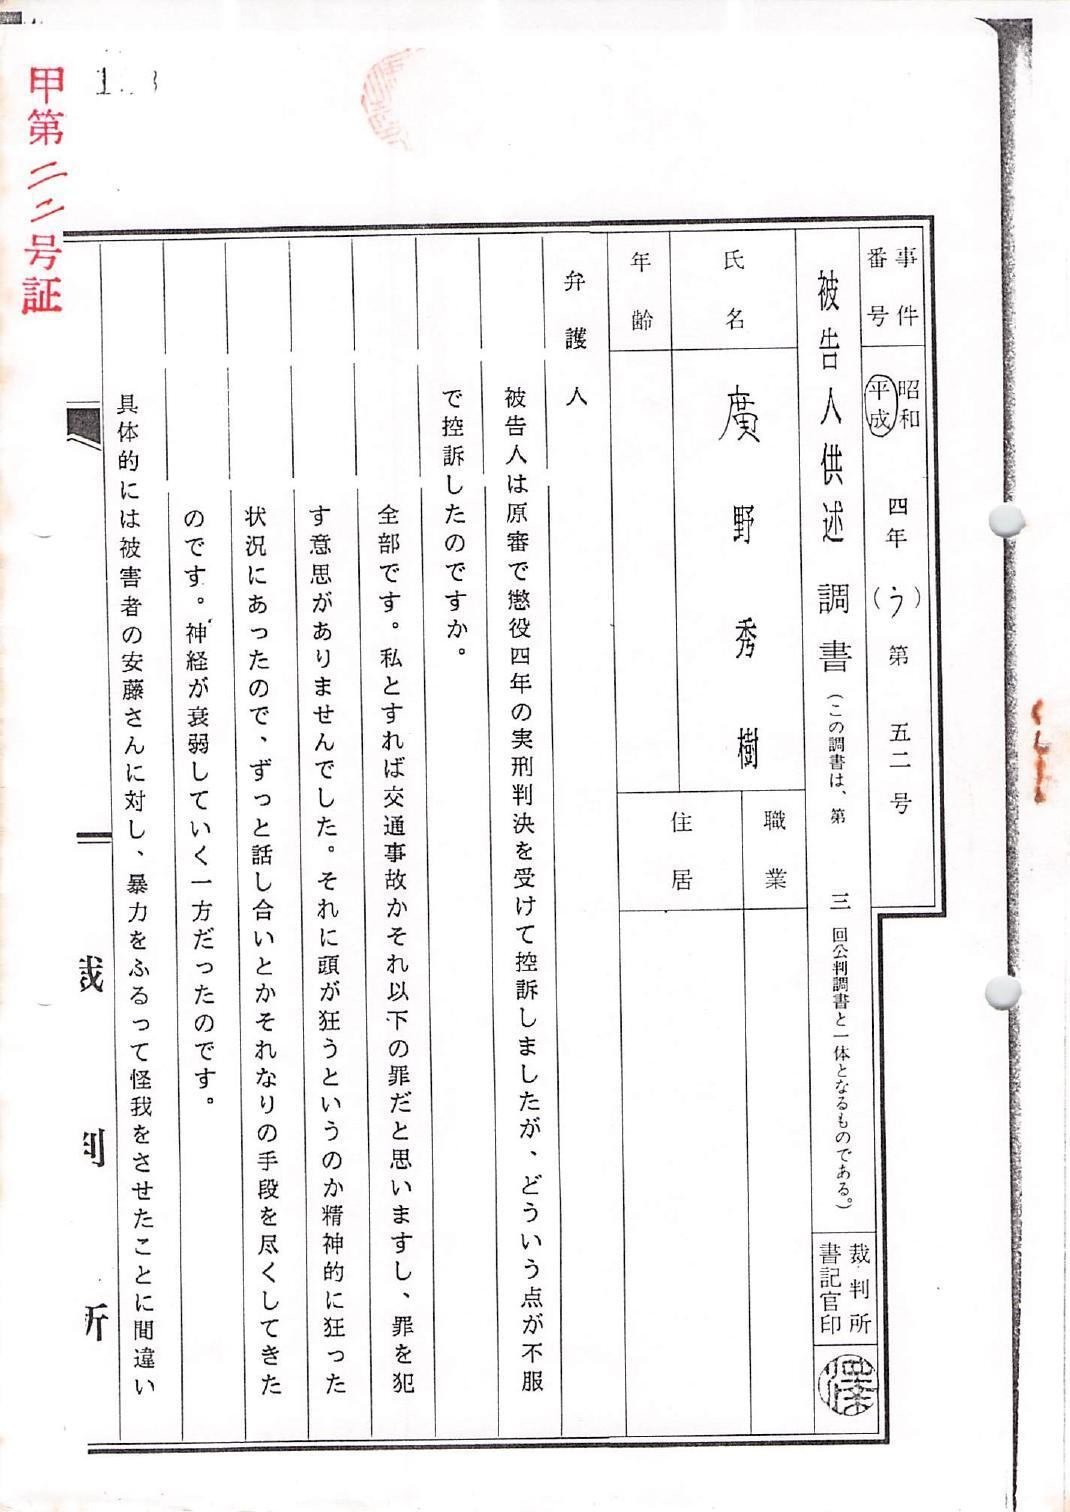 甲第二二号証
事件番号
昭和
平成
四年（う）第 五二 号
被告人供述調書（この調書は、第 三 回公判調書と一体となるものである。）
裁判所書記官印
氏名
廣野秀樹
年齢
職業
住居
弁護人
被告人は原審で懲役四年の実刑判決を受けて控訴しましたが、どういう点が不服
で控訴したのですか。
全部です。私とすれば交通事故かそれ以下の罪だと思いますし、罪を犯
す意思がありませんでした。それに頭が狂うというのか精神的に狂った
状況にあったので、ずっと話し合いとかそれなりの手段を尽くしてきた
のです。神経が衰弱していく一方だったのです。
具体的には被害者の安藤さんに対し、暴力をふるって怪我をさせたことに間違い
裁判所